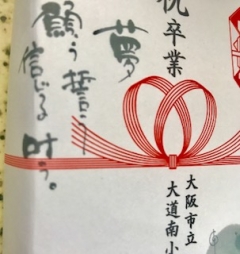 祝卒業
夢
願う誓う
信じる叶う。
大阪市立
大道南小